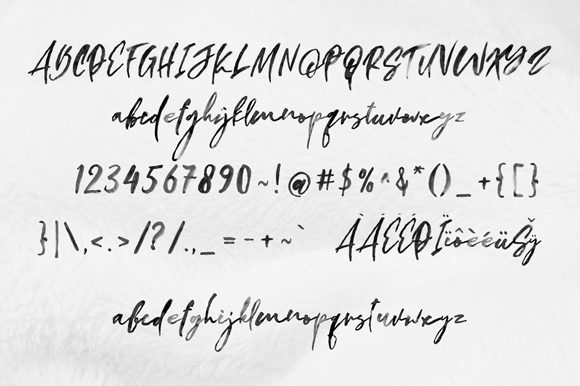 ABCDEFGHIJKLMNOPQRSTUVWXYZ
abcdefghijklmnopqrstuvwxyz
1234567890~!@#$%^&*()_+{[]}
}|\,<.>/?/.,_=-+~` ÀÁÈÉÐÏïôèéüŠÿ
abcdefghijklmnopqrstuvwxyz